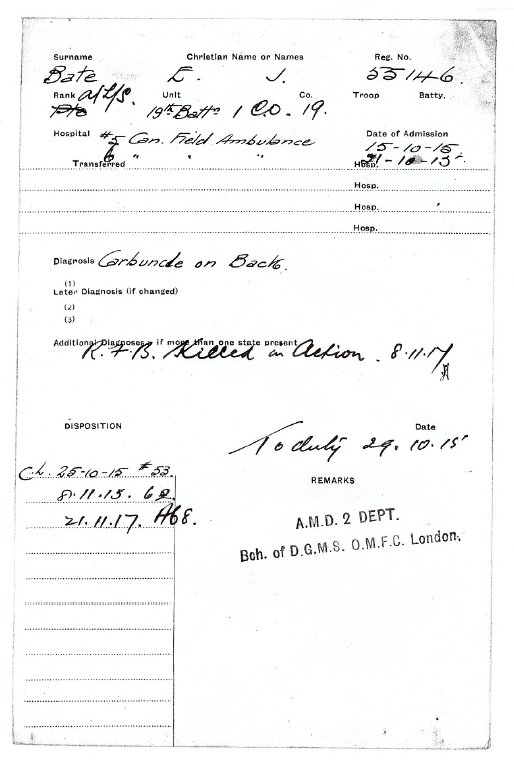 Surname Christian Name or Names Reg. No.
Bate E. J. 55146.
Rank A/L/S. Unit Co. Troop Batty.
Pte 19th Battn 1 C.O. 19.
Hospital #5 Can. Field Ambulance Date of Admission
15-10-15
6 " " " 21-10-15
Transferred Hosp.
Hosp.
Hosp.
Hosp.
Diagnosis Carbuncle on Back.
(1)
Later Diagnosis (if changed)
(2)
(3)
Additional Diagnoses, if more than one state present
R.F.B. Killed in Action. 8.11.17
DISPOSITION Date
To duty 29.10.15
C.L. 25-10-15 #53.
REMARKS
8.11.15. 62.
21.11.17. A68.
A.M.D. 2 DEPT.
Bch. of D.G.M.S. O.M.F.C. London.